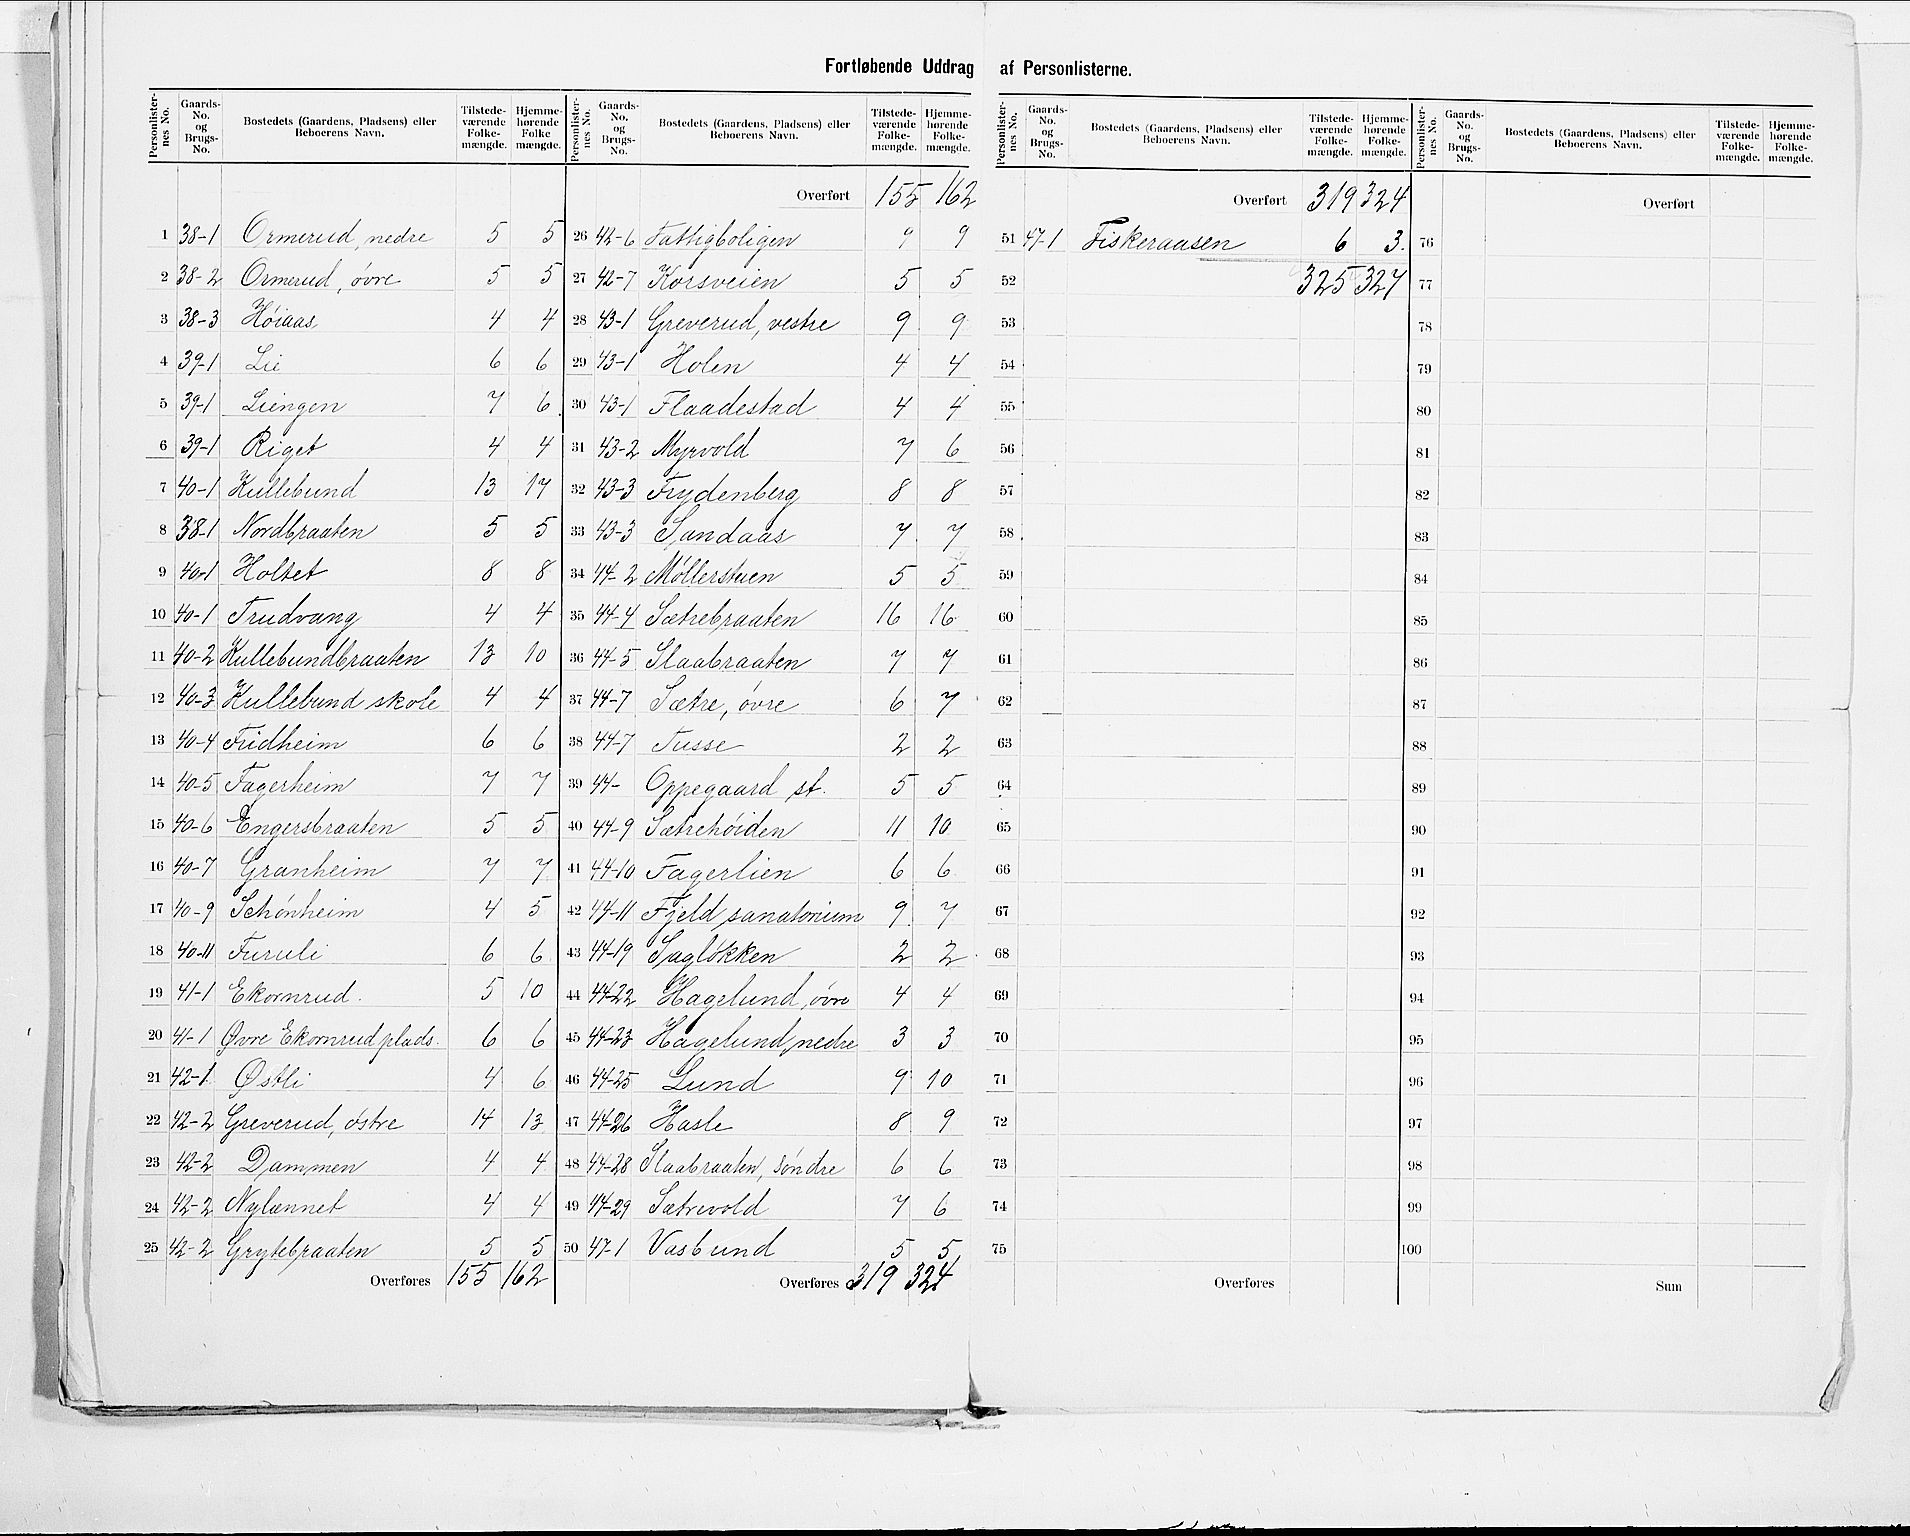 Fortløbende Uddrag af Personlisterne.
Personlisternes No. | Gaards-No. og Brugs-No. | Bostedets (Gaardens, Pladsens) eller Beboerens Navn. | Tilstedeværende Folkemængde. | Hjemmehørende Folkemængde.
1 38-1 Ormerud, nedre 5 5
2 38-2 Ormerud, øvre 5 5
3 38-3 Høiaas 4 4
4 39-1 Lii 6 6
5 39-1 Liengen 7 6
6 39-1 Riget 4 4
7 40-1 Kullebund 13 17
8 38-1 Nordbraaten 5 5
9 40-1 Holtet 8 8
10 40-1 Trudvang 4 4
11 40-2 Kullebundbraaten 13 10
12 40-3 Kullebund skole 4 4
13 40-4 Fridheim 6 6
14 40-5 Fagerheim 7 7
15 40-6 Engersbraaten 5 5
16 40-7 Granheim 7 7
17 40-9 Schønheim 4 5
18 40-11 Furuli 6 6
19 41-1 Ekornrud. 5 10
20 41-1 Øvre Ekornrud plads. 6 6
21 42-1 Østli 4 6
22 42-2 Greverud, østre 14 13
23 42-2 Dammen 4 4
24 42-2 Nylænnet 4 4
25 42-2 Grytebraaten 5 5
Overføres 155 162
Personlisternes No. | Gaards-No. og Brugs-No. | Bostedets (Gaardens, Pladsens) eller Beboerens Navn. | Tilstedeværende Folkemængde. | Hjemmehørende Folkemængde.
Overført 155 162
26 42-6 Fattigboligen 9 9
27 42-7 Korsveien 5 5
28 43-1 Greverud, vestre 9 9
29 43-1 Holen 4 4
30 43-1 Flaadestad 4 4
31 43-2 Myrvold 7 6
32 43-3 Frydenberg 8 8
33 43-3 Sandaas 7 7
34 44-2 Møllerstuen 5 5
35 44-4 Sætrebraaten 16 16
36 44-5 Slaabraaten 7 7
37 44-7 Sætre, øvre 6 7
38 44-7 Tusse 2 2
39 44- Oppegaard st. 5 5
40 44-9 Sætrehøiden 11 10
41 44-10 Fagerlien 6 6
42 44-11 Fjeld sanatorium 9 7
43 44-19 Sagløkken 2 2
44 44-22 Hagelund, øvre 4 4
45 44-23 Hagelund, nedre 3 3
46 44-25 Lund 9 10
47 44-26 Hasle 8 9
48 44-28 Slaabraaten, søndre 6 6
49 44-29 Sætrevold 7 6
50 47-1 Vasbund 5 5
Overføres 319 324
Personlisternes No. | Gaards-No. og Brugs-No. | Bostedets (Gaardens, Pladsens) eller Beboerens Navn. | Tilstedeværende Folkemængde. | Hjemmehørende Folkemængde.
Overført 319 324
51 47-1 Fiskeraasen 6 3.
52 325 327
53
54
55
56
57
58
59
60
61
62
63
64
65
66
67
68
69
70
71
72
73
74
75
Overføres
Personlisternes No. | Gaards-No. og Brugs-No. | Bostedets (Gaardens, Pladsens) eller Beboerens Navn. | Tilstedeværende Folkemængde. | Hjemmehørende Folkemængde.
Overført
76
77
78
79
80
81
82
83
84
85
86
87
88
89
90
91
92
93
94
95
96
97
98
99
100
Sum